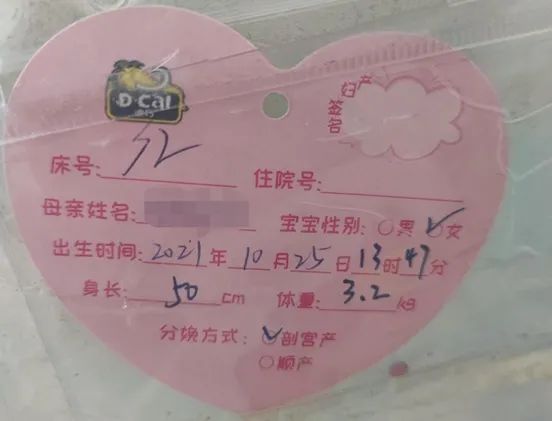 D-Cal
妇产
签名
床号: 住院号:
母亲姓名: 宝宝性别: 男 女
出生时间: 2021年 10月 25日 13时 47分
身长: 50 cm 体重: 3.2 kg
分娩方式: 剖宫产
顺产